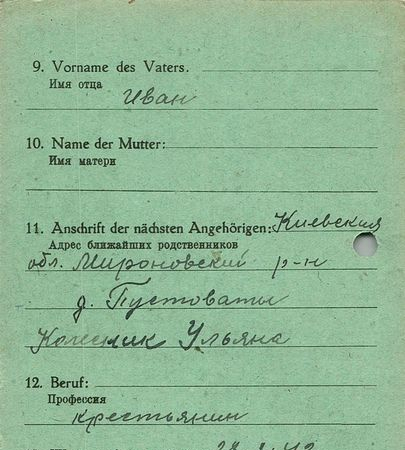 9. Vorname des Vaters.
Имя отца
Иван
10. Name der Mutter:
Имя матери
11. Anschrift der nächsten Angehörigen: Киевская
Адрес ближайших родственников
обл. Мироновский р-н
д. Пустоваты
Ульяна
12. Beruf:
Профессия
крестьянин